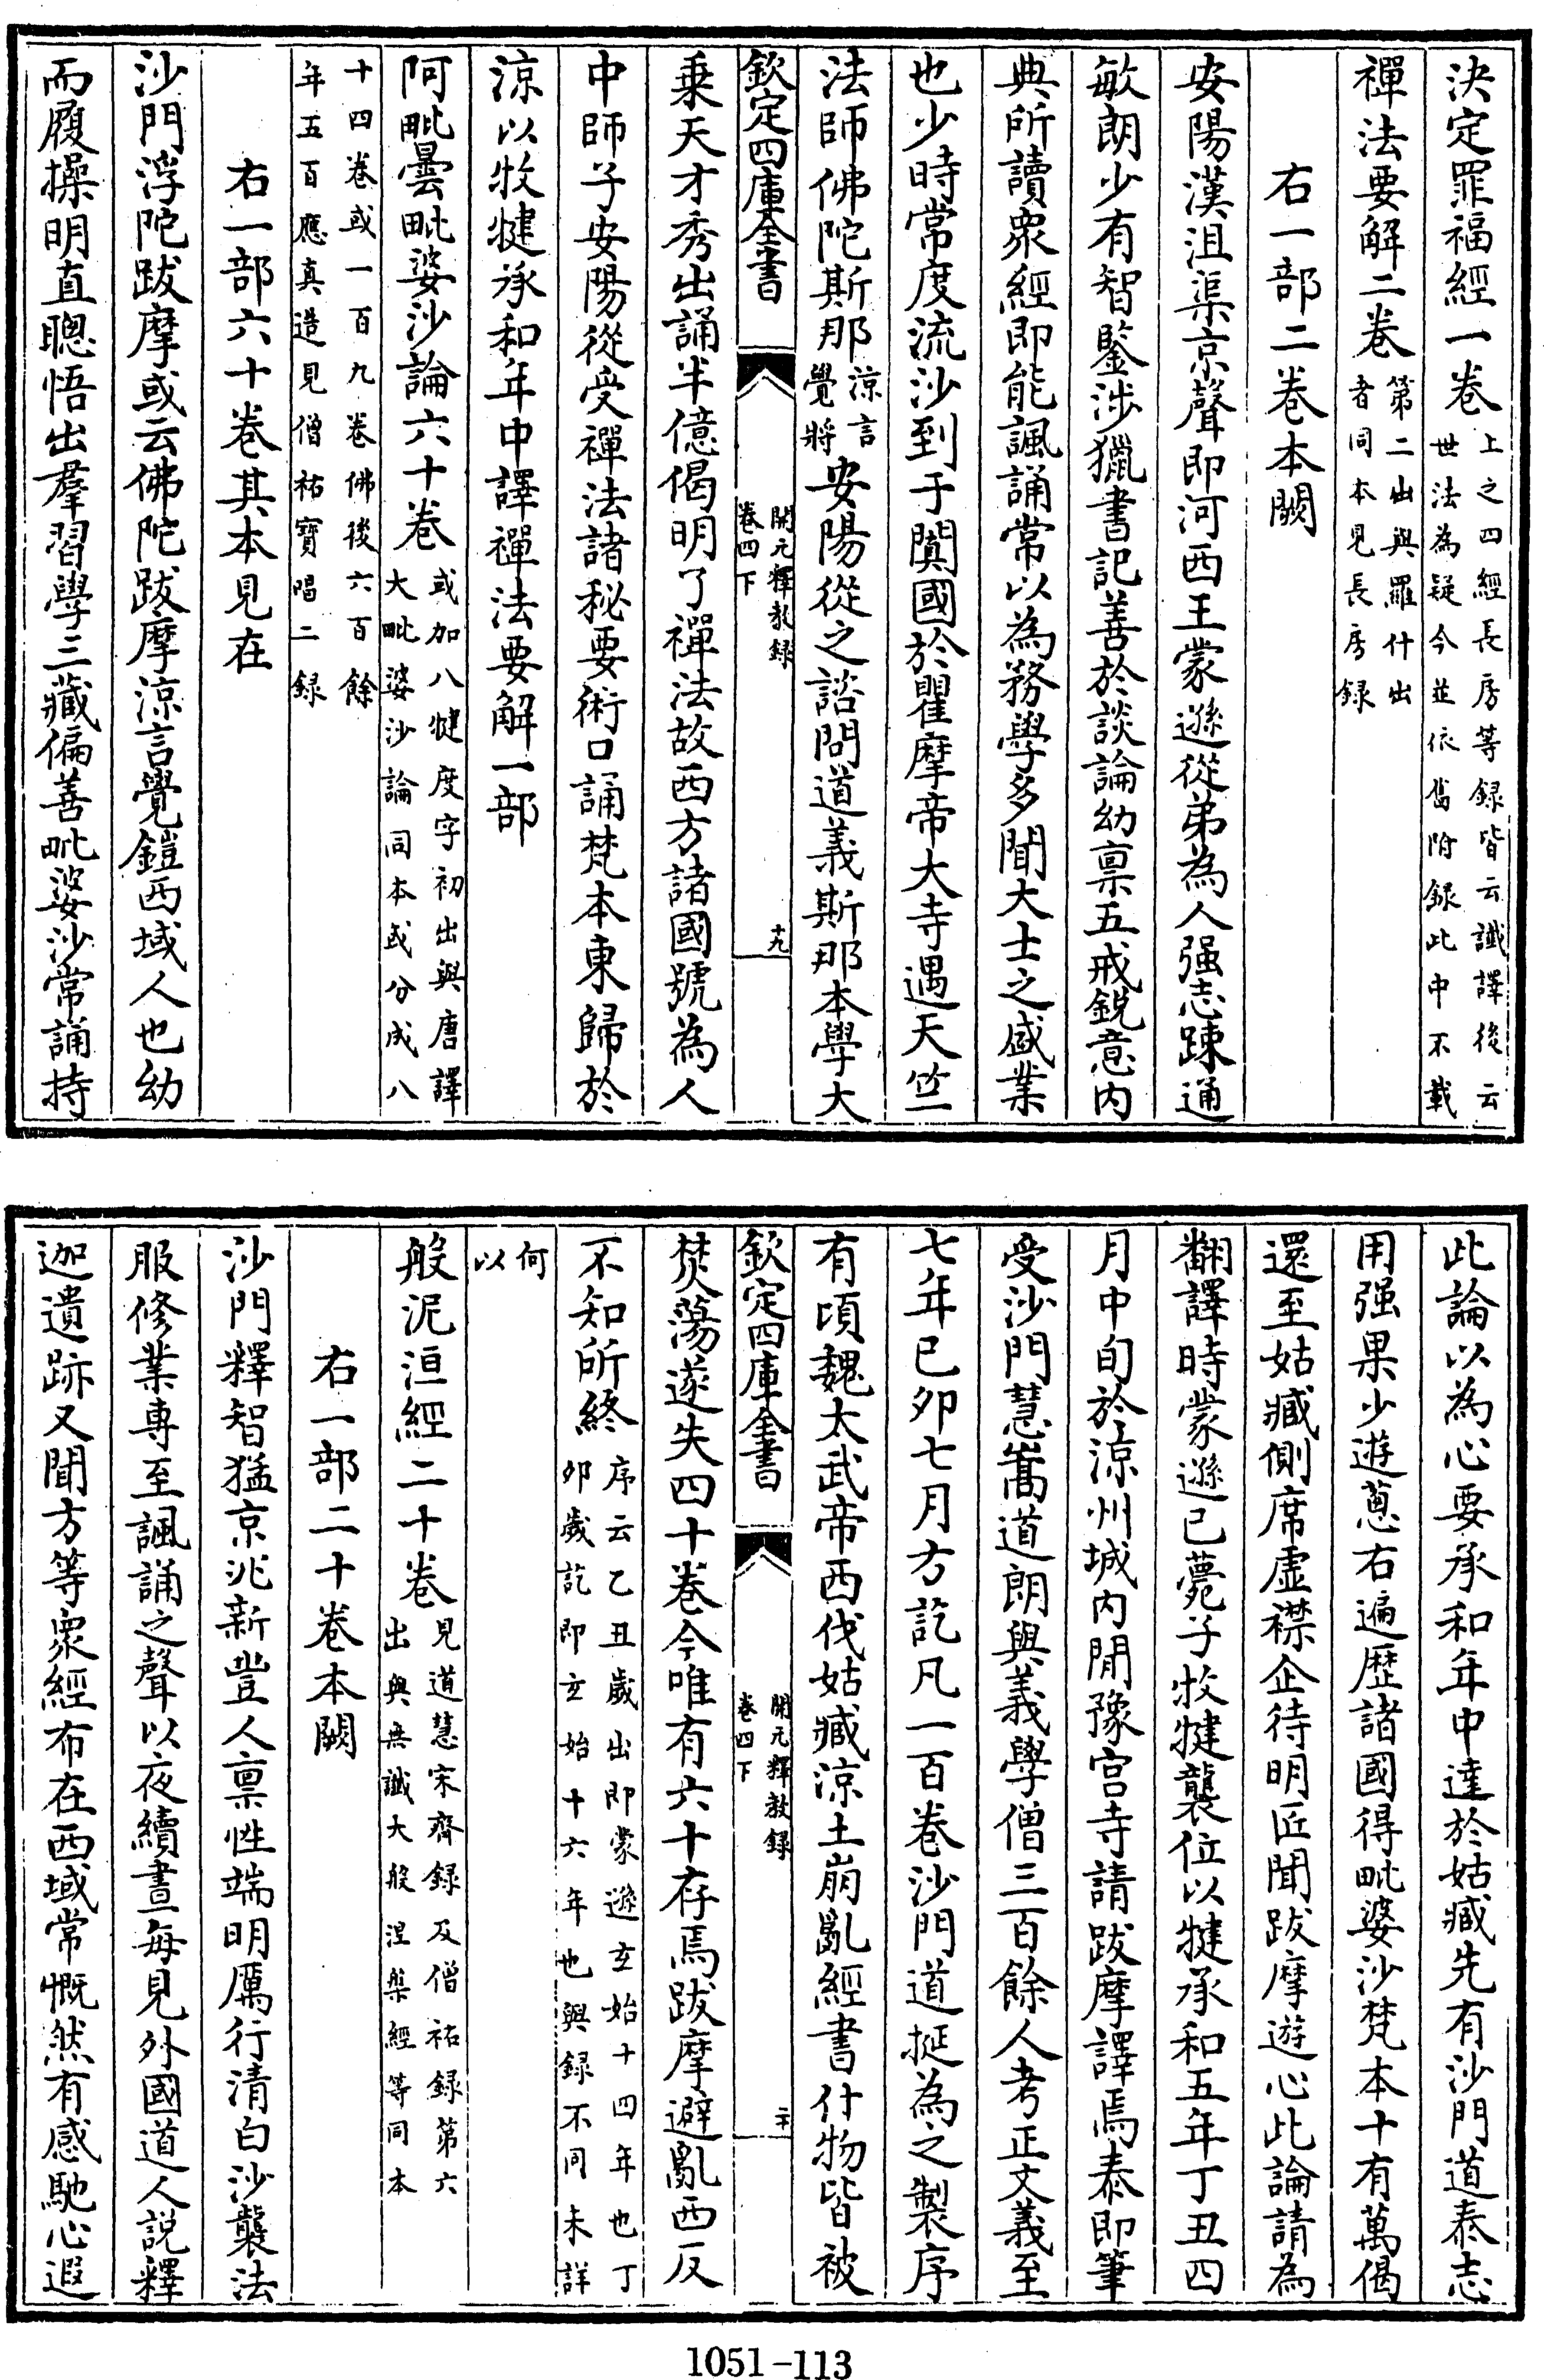 決定罪福經一卷上之四經長房等録皆云讖譯後云世法為疑今並依舊附録此中不載
禪法要解二卷第二出與羅什出者同本見長房録
右一部二卷本闕
安陽漢沮渠京聲即河西王蒙遜從弟為人强志疎通
敏朗少有智鑒涉獵書記善於談論幼禀五戒銳意内
典所讀衆經即能諷誦常以為務學多聞大士之盛業
也少時常度流沙到于闐國於瞿摩帝大寺遇天竺
法師佛陀斯那涼言覺將安陽從之諮問道義斯那本學大
欽定四庫全書
開元釋教録
卷四下
十九
乗天才秀出誦半億偈明了禪法故西方諸國號為人
中師子安陽從受禪法諸秘要術口誦梵本東歸於
涼以牧犍承和年中譯禪法要解一部
阿毗曇毗婆沙論六十卷或加八犍度字初出與唐譯大毗婆沙論同本或分成八
十四卷或一百九卷佛後六百餘年五百應真造見僧祐寶唱二録
右一部六十卷其本見在
沙門浮陀跋摩或云佛陀跋摩涼言覺鎧西域人也幼
而履操明直聰悟出羣習學三藏偏善毗婆沙常誦持
此論以為心要承和年中達於姑臧先有沙門道泰志
用强果少遊蔥右遍歴諸國得毗婆沙梵本十有萬偈
還至姑臧側席虛襟企待明匠聞跋摩遊心此論請為
翻譯時蒙遜已薨子牧犍襲位以犍承和五年丁丑四
月中旬於涼州城内閒豫宫寺請跋摩譯焉泰即筆
受沙門慧嵩道朗與義學僧三百餘人考正文義至
七年已夘七月方訖凡一百卷沙門道挻為之製序
有頃魏太武帝西伐姑臧涼土崩亂經書什物皆被
欽定四庫全書
開元釋教録
卷四下
二十
焚蕩遂失四十卷今唯有六十存焉跋摩避亂西反
不知所終序云乙丑歲出即蒙遜玄始十四年也丁夘歲訖即玄始十六年也與録不同未詳
何以
般泥洹經二十卷見道慧宋齊録及僧祐録第六出與無讖大般涅槃經等同本
右一部二十卷本闕
沙門釋智猛京兆新豐人禀性端明厲行清白沙襲法
服修業專至諷誦之聲以夜續晝每見外國道人説釋
迦遺跡又聞方等衆經布在西域常慨然有感馳心遐
1051-113